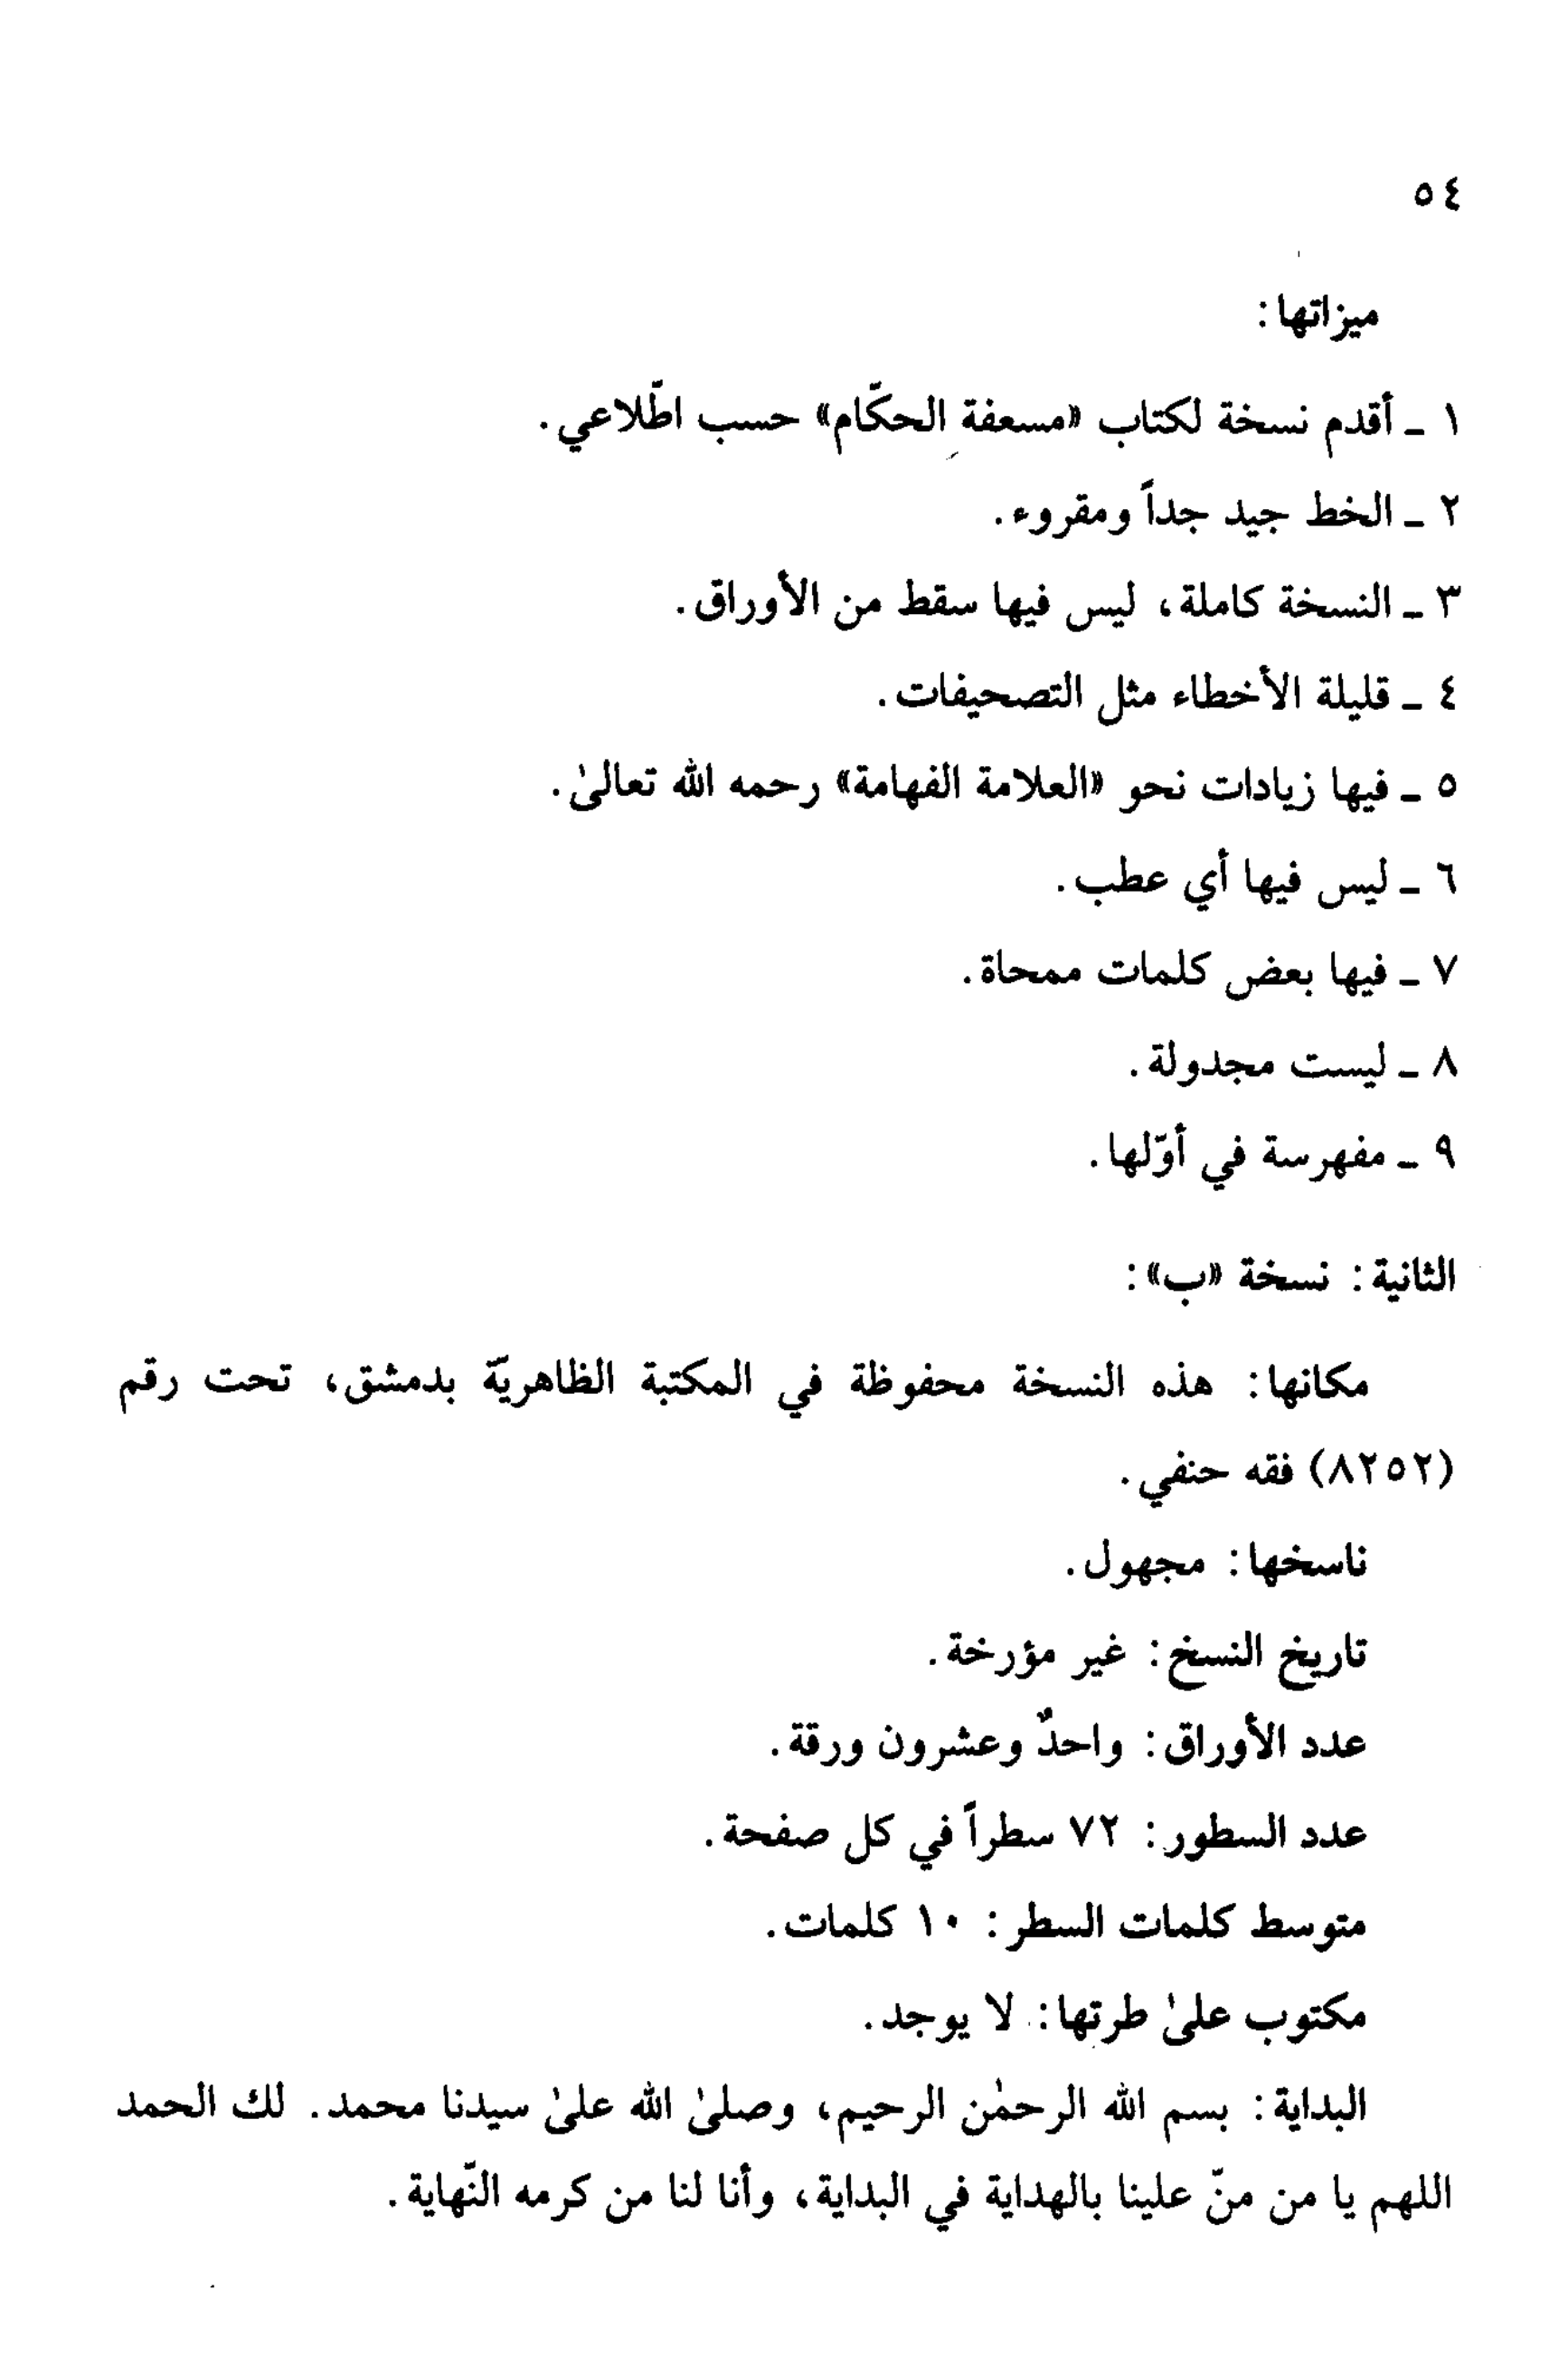 ٥٤
ميزاتها:
١ ـ أقدم نسخة لكتاب «مسعفة الحكّام» حسب اطّلاعي.
٢ ـ الخط جيد جداً ومقروء.
٣ ـ النسخة كاملة، ليس فيها سقط من الأوراق.
٤ ـ قليلة الأخطاء مثل التصحيفات.
٥ ـ فيها زيادات نحو «العلامة الفهامة» رحمه الله تعالىٰ.
٦ ـ ليس فيها أي عطب.
٧ ـ فيها بعض كلمات ممحاة.
٨ ـ ليست مجدولة.
٩ ـ مفهرسة في أوّلها.
الثانية: نسخة «ب»:
مكانها: هذه النسخة محفوظة في المكتبة الظاهريّة بدمشق، تحت رقم
(٨٢٥٢) فقه حنفي.
ناسخها: مجهول.
تاريخ النسخ: غير مؤرخة.
عدد الأوراق: واحدٌ وعشرون ورقة.
عدد السطور: ٧٢ سطراً في كل صفحة.
متوسط كلمات السطر: ١٠ كلمات.
مكتوب علىٰ طرتها: لا يوجد.
البداية: بسم الله الرحمٰن الرحيم، وصلىٰ الله علىٰ سيدنا محمد. لك الحمد
اللهم يا من منّ علينا بالهداية في البداية، وأنا لنا من كرمه النّهاية.